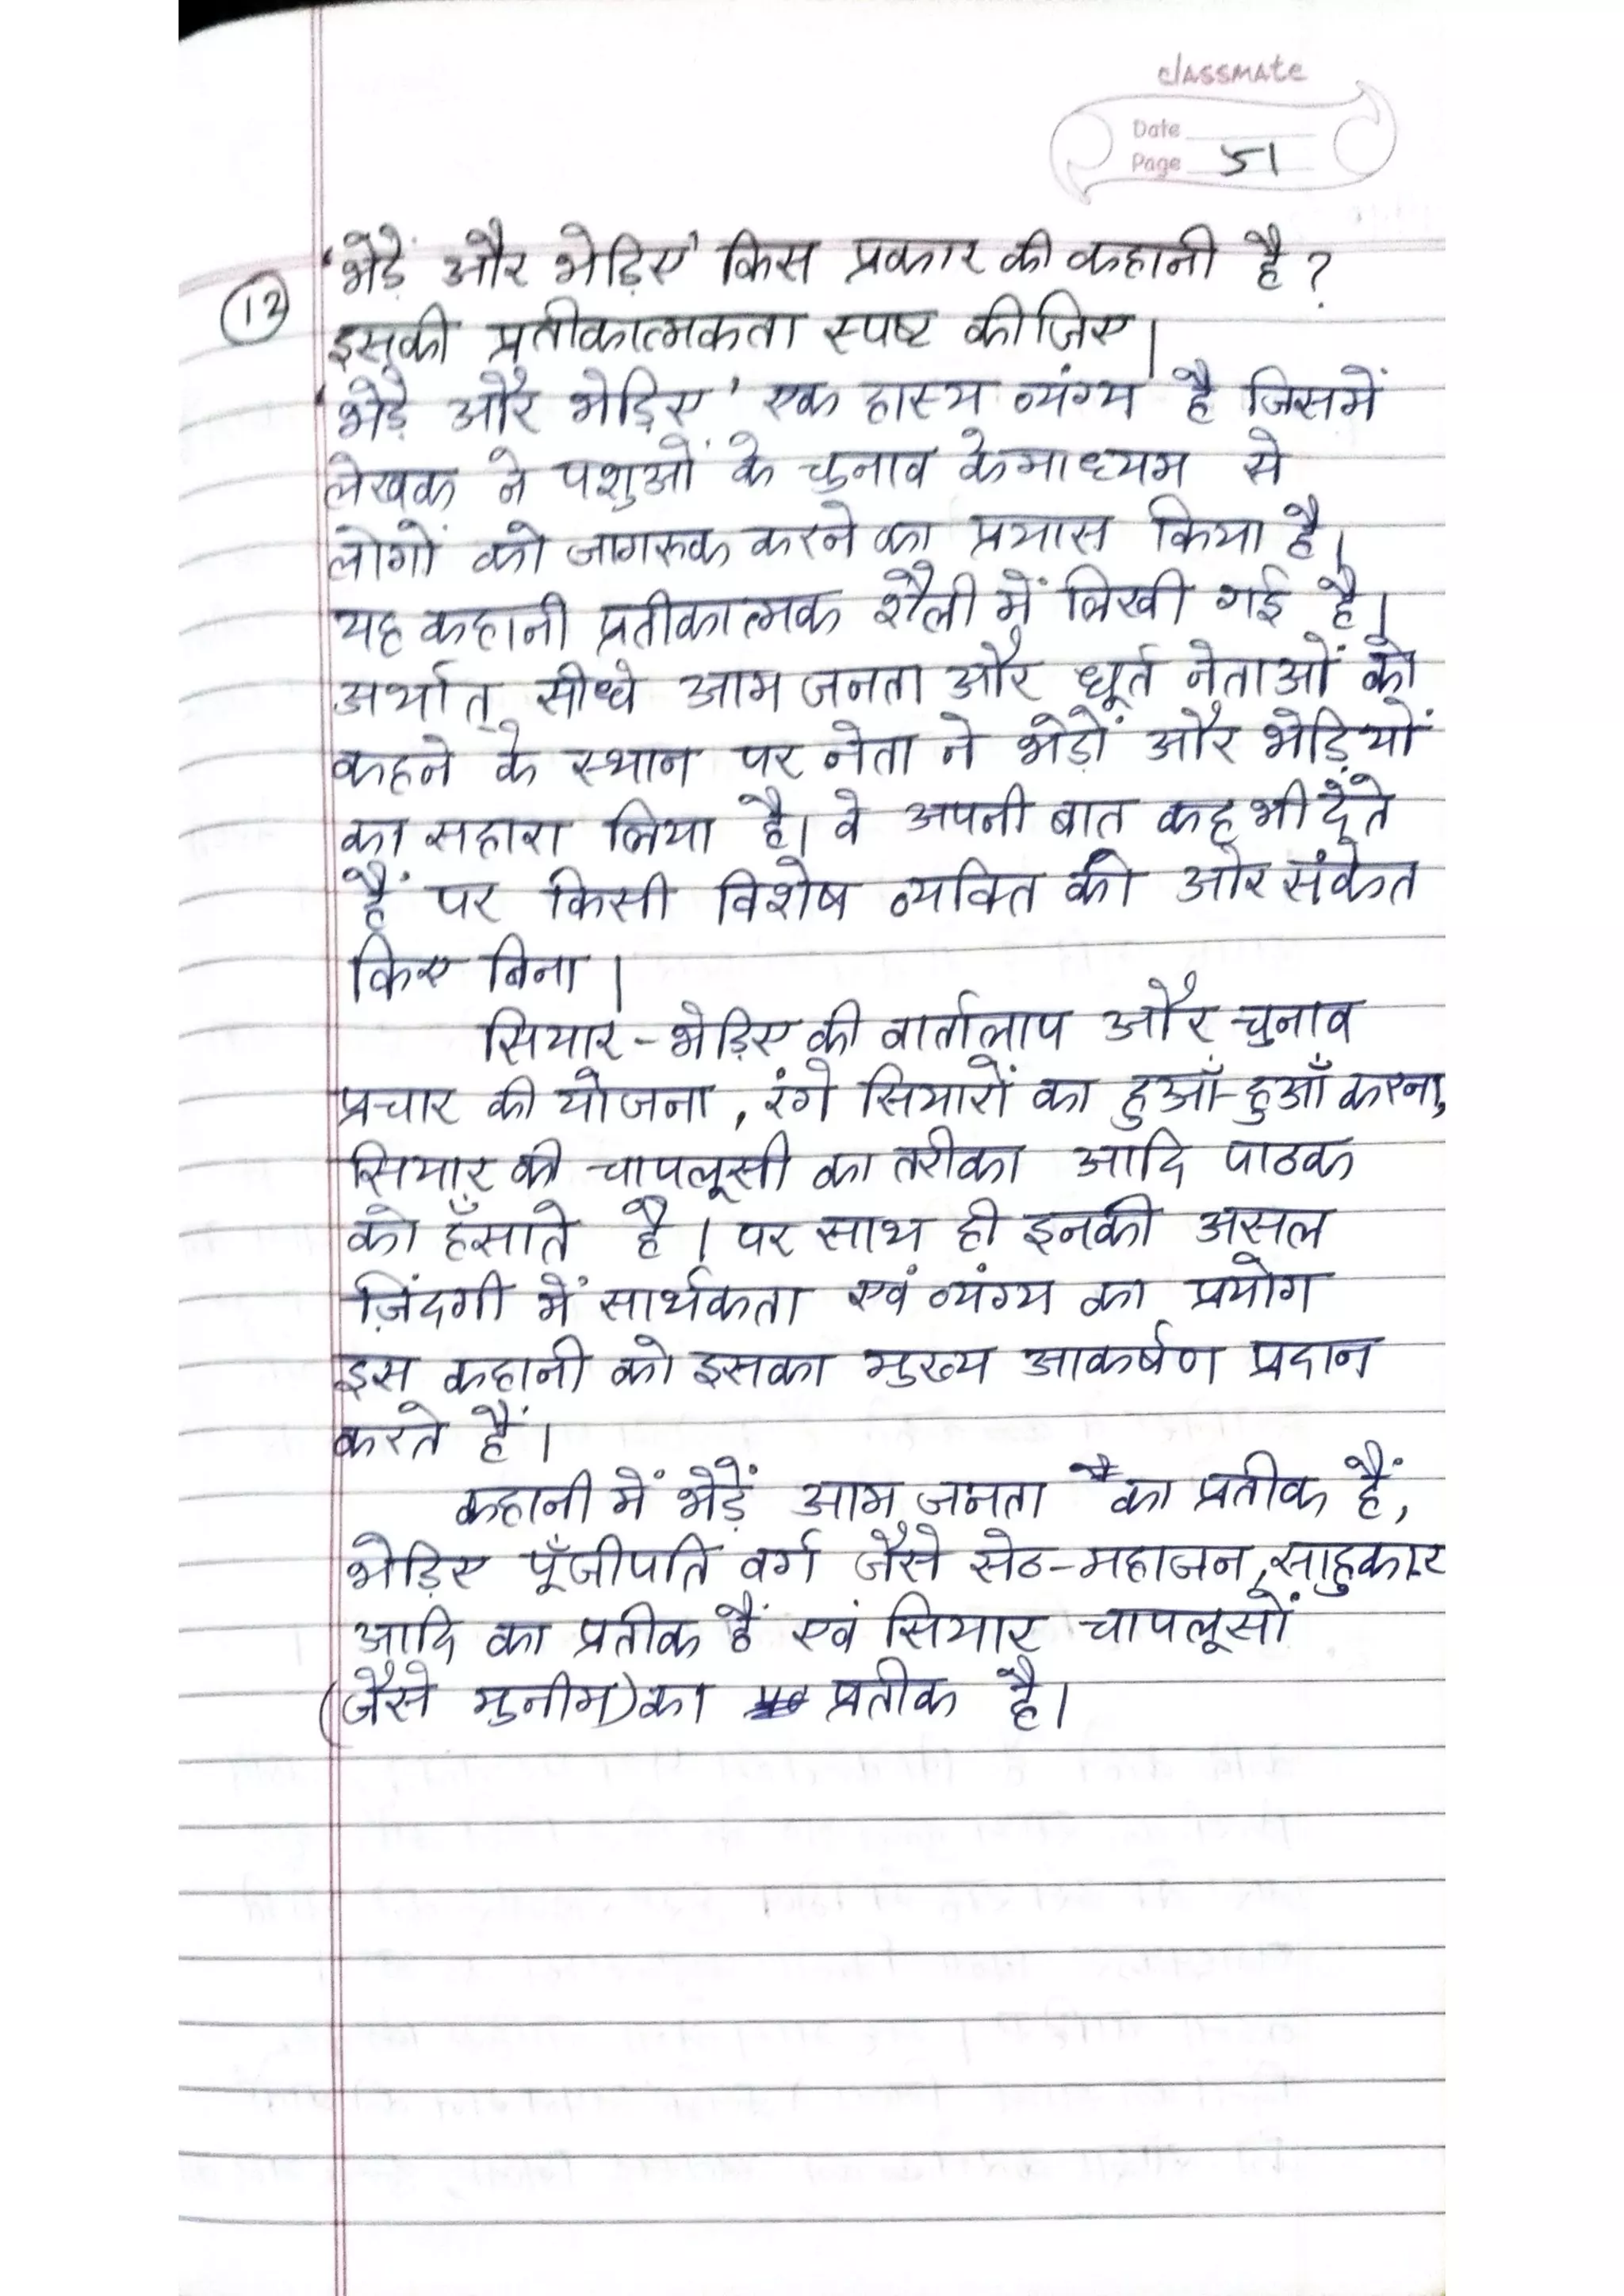 classmate
Date
Page 51
'भेड़ें और भेड़िए' किस प्रकार की कहानी है?
(13) इसकी प्रतीकात्मकता स्पष्ट कीजिए।
'भेड़ें और भेड़िए' एक हास्य व्यंग्य है जिसमें
लेखक ने पशुओं के चुनाव के माध्यम से
लोगों को जागरूक करने का प्रयास किया है।
यह कहानी प्रतीकात्मक शैली में लिखी गई है।
अर्थात् सीधे आम जनता और धूर्त नेताओं को
कहने के स्थान पर नेता ने भेड़ों और भेड़ियों
का सहारा लिया है। वे अपनी बात कह भी देते
हैं पर किसी विशेष व्यक्ति की ओर संकेत
किए बिना।
सियार-भेड़िए की वार्तालाप और चुनाव
प्रचार की योजना, रंगे सियारों का हुआँ-हुआँ करना,
सियार की चापलूसी का तरीका आदि पाठक
को हँसाते है। पर साथ ही इनकी असल
ज़िंदगी में सार्थकता एवं व्यंग्य का प्रयोग
इस कहानी को इसका मुख्य आकर्षण प्रदान
करते हैं।
कहानी में भेड़ें आम जनता का प्रतीक हैं,
भेड़िए पूँजीपति वर्ग जैसे सेठ-महाजन, साहुकार
आदि का प्रतीक हैं एवं सियार चापलूसों
(जैसे मुनीम) का प्रतीक है।